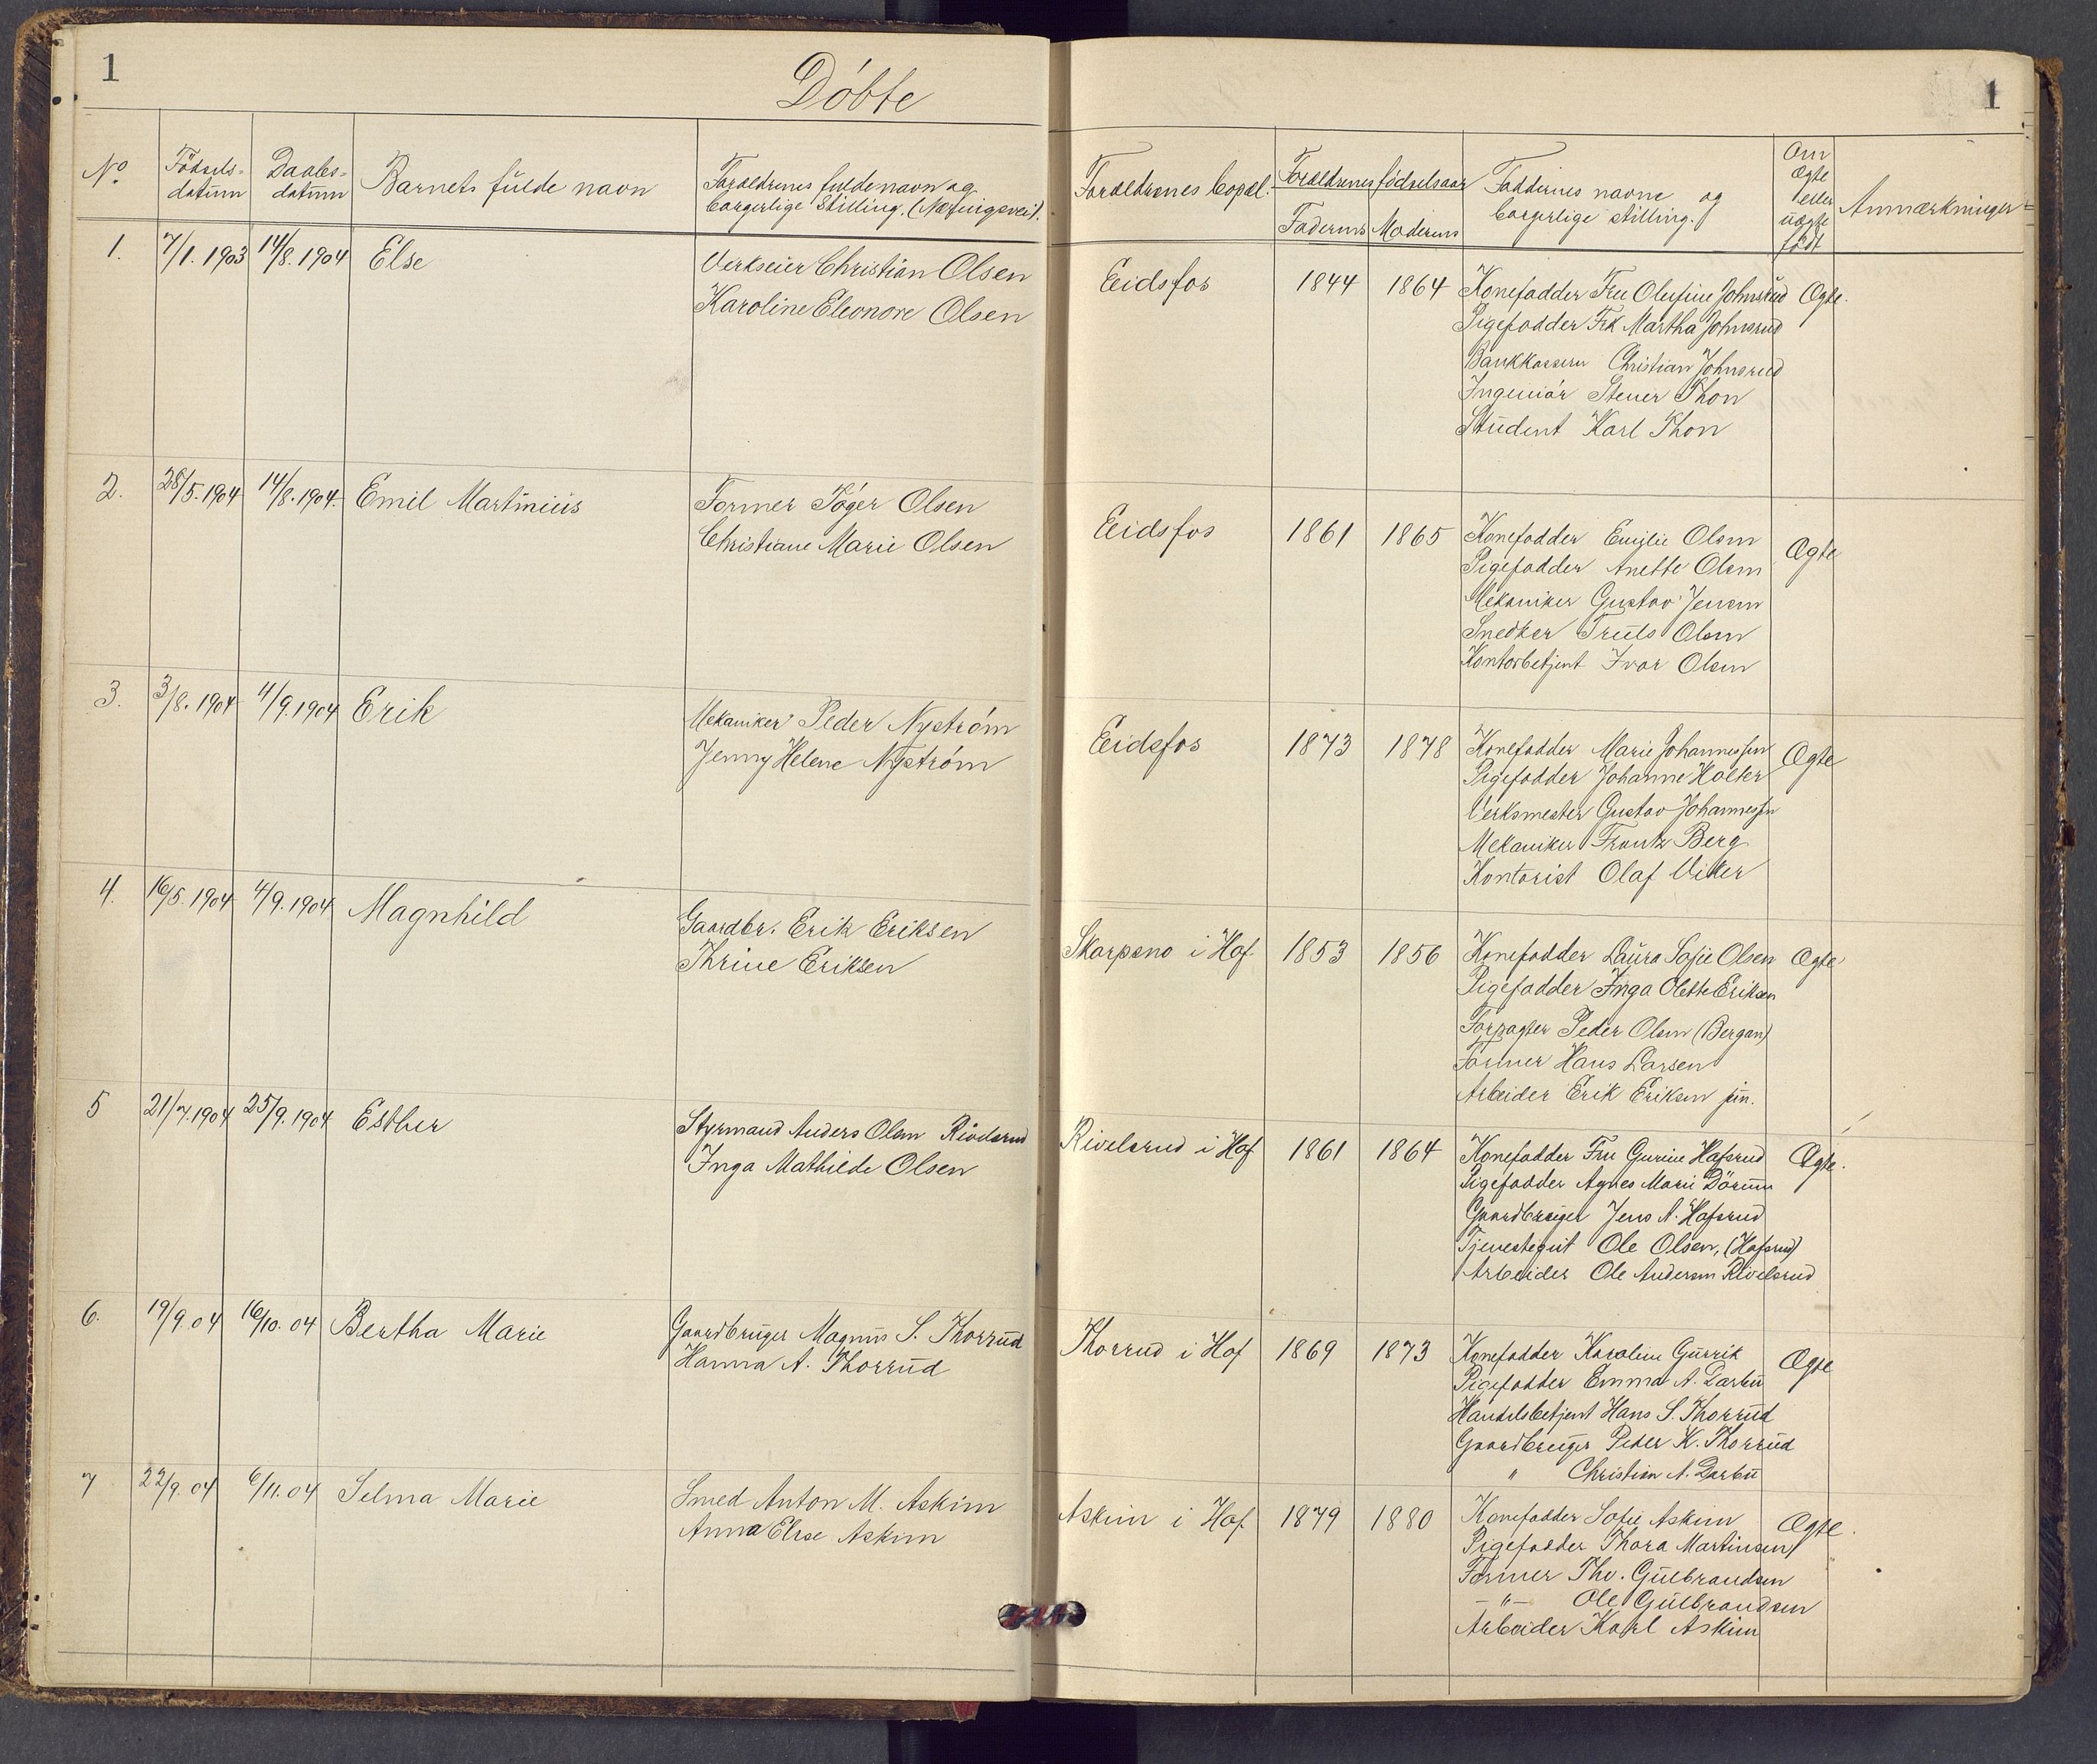 1
Döbte
1
No.
Födsels-
datum
Daabs-
datum
Barnets fulde navn
Forældrenes fulde navn og
borgerlige Stilling. (Næringsvei).
Forældrenes bopæl.
Forældrenes födselsaar
Faderens
Moderens
Faddernes navne og
borgerlige stilling.
Om
Ægte
eller
uægte
födt
Anmærkninger
1.
7/1. 1903
14/8. 1904
Else
Verkseier Christian Olsen
Karoline Eleonore Olsen
Eidsfos
1844
1864
Konefadder Fru Olufine Johnsrud
Pigefadder Frk Martha Johnsrud
Bankkasserer Christian Johnsrud
Ingeniör Stener Thon
Student Karl Thon
Ægte.
2.
28/5. 1904
14/8. 1904.
Emil Martinius
Former Olsen
Christiane Marie Olsen
Eidsfos
1861
1865
Konefadder Emilie Olsen
Pigefadder Anette Olsen
Mekaniker Gustav Jensen
Snedker Truls Olsen
Kontorbetjent Ivar Olsen
Ægte
3.
3/8. 1904
4/9. 1904
Erik
Mekaniker Peder Nyström
Jenny Helene Nyström
Eidsfos
1873
1878
Konefadder Marie Johannessen
Pigefadder Johanne Holter
Verksmester Gustav Johannessen
Mekaniker Frantz Berg
Kontorist Olaf Viker
Ægte
4.
16/5. 1904
4/9. 1904
Magnhild
Gaardbr. Erik Eriksen
Thrine Eriksen
Skarpsno i Hof
1853
1856
Konefadder Laura Sofie Olsen
Pigefadder Inga Olette Eriksen
Forpagter Peder Olsen (Bergan)
Former Hans Larsen
Arbeider Erik Eriksen jun.
Ægte
5
21/7. 1904
25/9. 1904
Esther
Styrmand Anders Olsen Rivelsrud
Inga Mathilde Olsen
Rivelsrud i Hof
1861
1864
Konefadder Fru Gurine Hafsrud
Pigefadder Agnes Marie Dörum
Gaardbruger Jens A. Hafsrud
Tjenestegut Ole Olsen, (Hafsrud)
Arbeider Ole Andersen Rivelsrud
Ægte.
6.
19/9. 04
16/10. 04
Bertha Marie
Gaardbruger Magnus S. Thorrud
Hanna A. Thorrud
Thorrud i Hof
1869
1873
Konefadder Karoline Gurrik
Pigefadder Emma A. Darbu
Handelsbetjent Hans S. Thorrud
Gaardbruger Peder K. Thorrud
" Christian A. Darbu
Ægte
7
22/9. 04
6/11. 04
Selma Marie
Smed Anton M. Askim
Anna Elise Askim
Askim i Hof.
1879
1880
Konefadder Sofie Askim
Pigefadder Thora Martinsen
Former Thv. Gulbrandsen
- " - Ole Gulbrandsen
Arbeider Karl Askim
Ægte.